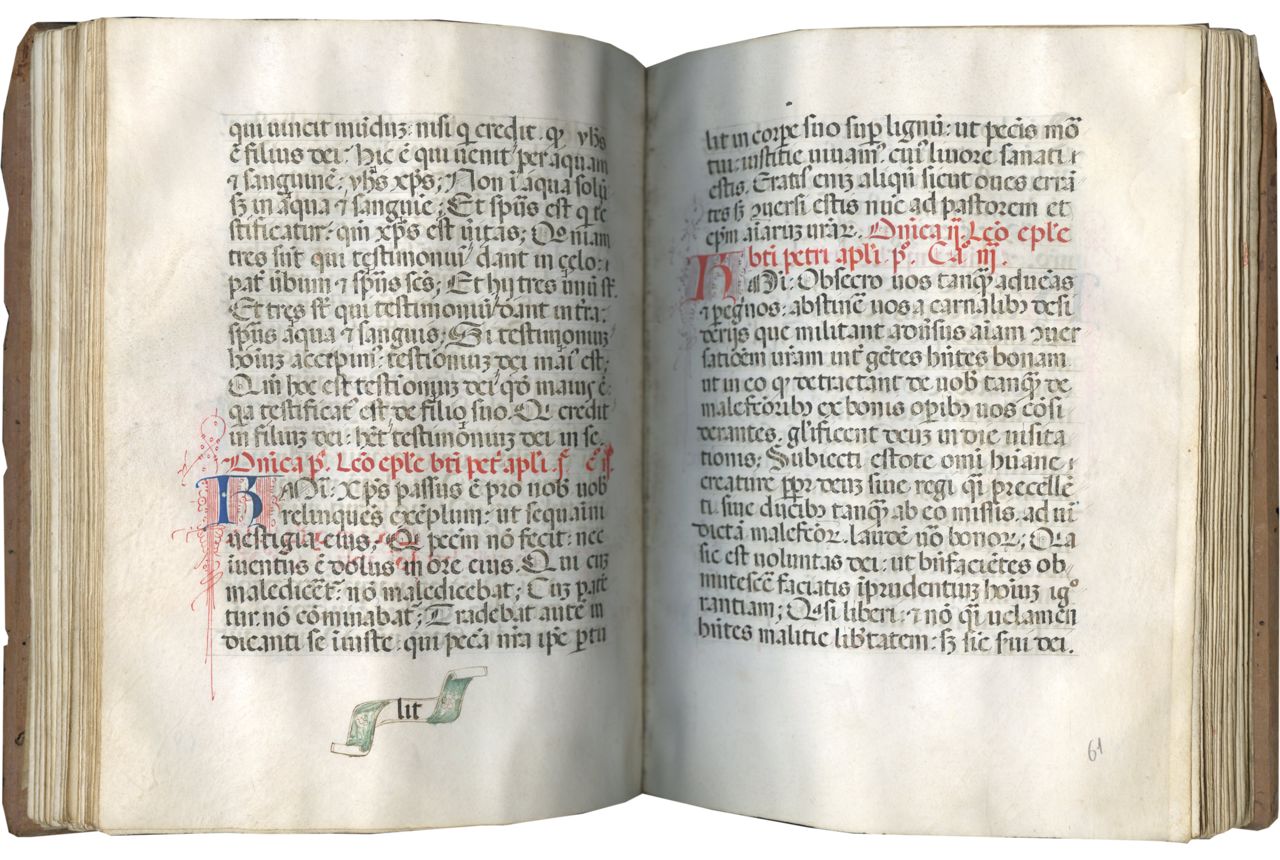 qui uincit mūduʒ: nisi q̄ credit. qꝫ yhs̄
ē filius dei: hic ē qui uenit per aquam
⁊ sanguinē: yhs̄ xp̄s; Non ī aqua solū
sꝫ in aqua ⁊ sanguīe; Et sp̄us est q te
stificatur: qm̄ xp̄s est ueritas; Qꝛoniam
tres sūt qui testimoniū dant in celo:
pat̄ uerbum ⁊ sp̄us sc̄s; Et hij tres unū st̄.
Et tres st̄ qui testimoniū dant in tr̄a:
sp̄us aqua ⁊ sanguis; Si testimoniuʒ
hoīuʒ accepim᷒: testimoniuʒ dei mai᷒ est;
Qm̄ hoc est testimoniuʒ dei qd̄ maius ē:
qa testificat᷒ est de filio suo. Qi credit
in filiuʒ dei: het̄ testimoniuʒ dei in se.
Dn̄ica pᵃ. Lc̄o ep̄le bt̄i pet̄ ap̄li. ṗ. c̄ ij.
KAr̄mi: Xp̄s passus ē pro nob̄ uob̄
relinquēs exēplum: ut sequamī
uestigia eius; Qi pecm̄ nō fecit: nec
inuentus ē dolus in ore eius. Qui cuʒ
malediceret̄: nō maledicebat; Cuʒ pate
tur: nō cōminabat̄; Tradebat autē iu
dicanti se īiuste: qui peccā nr̄a ip̄e p̄tu
lit
lit in corpe suo suꝑ lignū: ut pecīs mō
tui: iustitie uiuam᷒. cui᷒ liuore sanati
estis. Eratis eniʒ aliqn̄ sicut oues errā
tes sꝫ ꝯuersi estis nūc ad pastorem et
ep̄m aīaruʒ ur̄aꝝ. Dn̄ica ij. Lc̄o ep̄le
bt̄i petri ap̄li. pᵒ. Cᵃ. iij.
KAr̄mi: Obsecro uos tanqꝫ aduēas
⁊ pegnos: abstinē uos a carnalibꝫ desi
derijs que militant aduersus aīam ꝯuer
satiōem ur̄am int̄ gētes hn̄tes bonam
ut in eo qꝫ detractant de uob̄ tanqꝫ de
malefc̄oribꝫ ex bonis opibꝫ uos cōsi
derantes. gl̄ificent deuʒ in die uisita
tionis; Subiecti estote omī hūane
creature ꝓpr̄ deuʒ siue regi q̄i precellē
ti siue ducibꝫ tanqꝫ ab eo missis. ad uī
dictā malefc̄oꝝ. laudē uō bonoꝝ; Qꝛa
sic est uoluntas dei: ut bn̄faciētes ob
mutescē faciatis īprudentiuʒ hoīuʒ igᵒ
rantiam; Qꝛsi liberi: ⁊ nō q̄i uelamen
hn̄tes malitie libtatem: sꝫ sic sui dei.
61